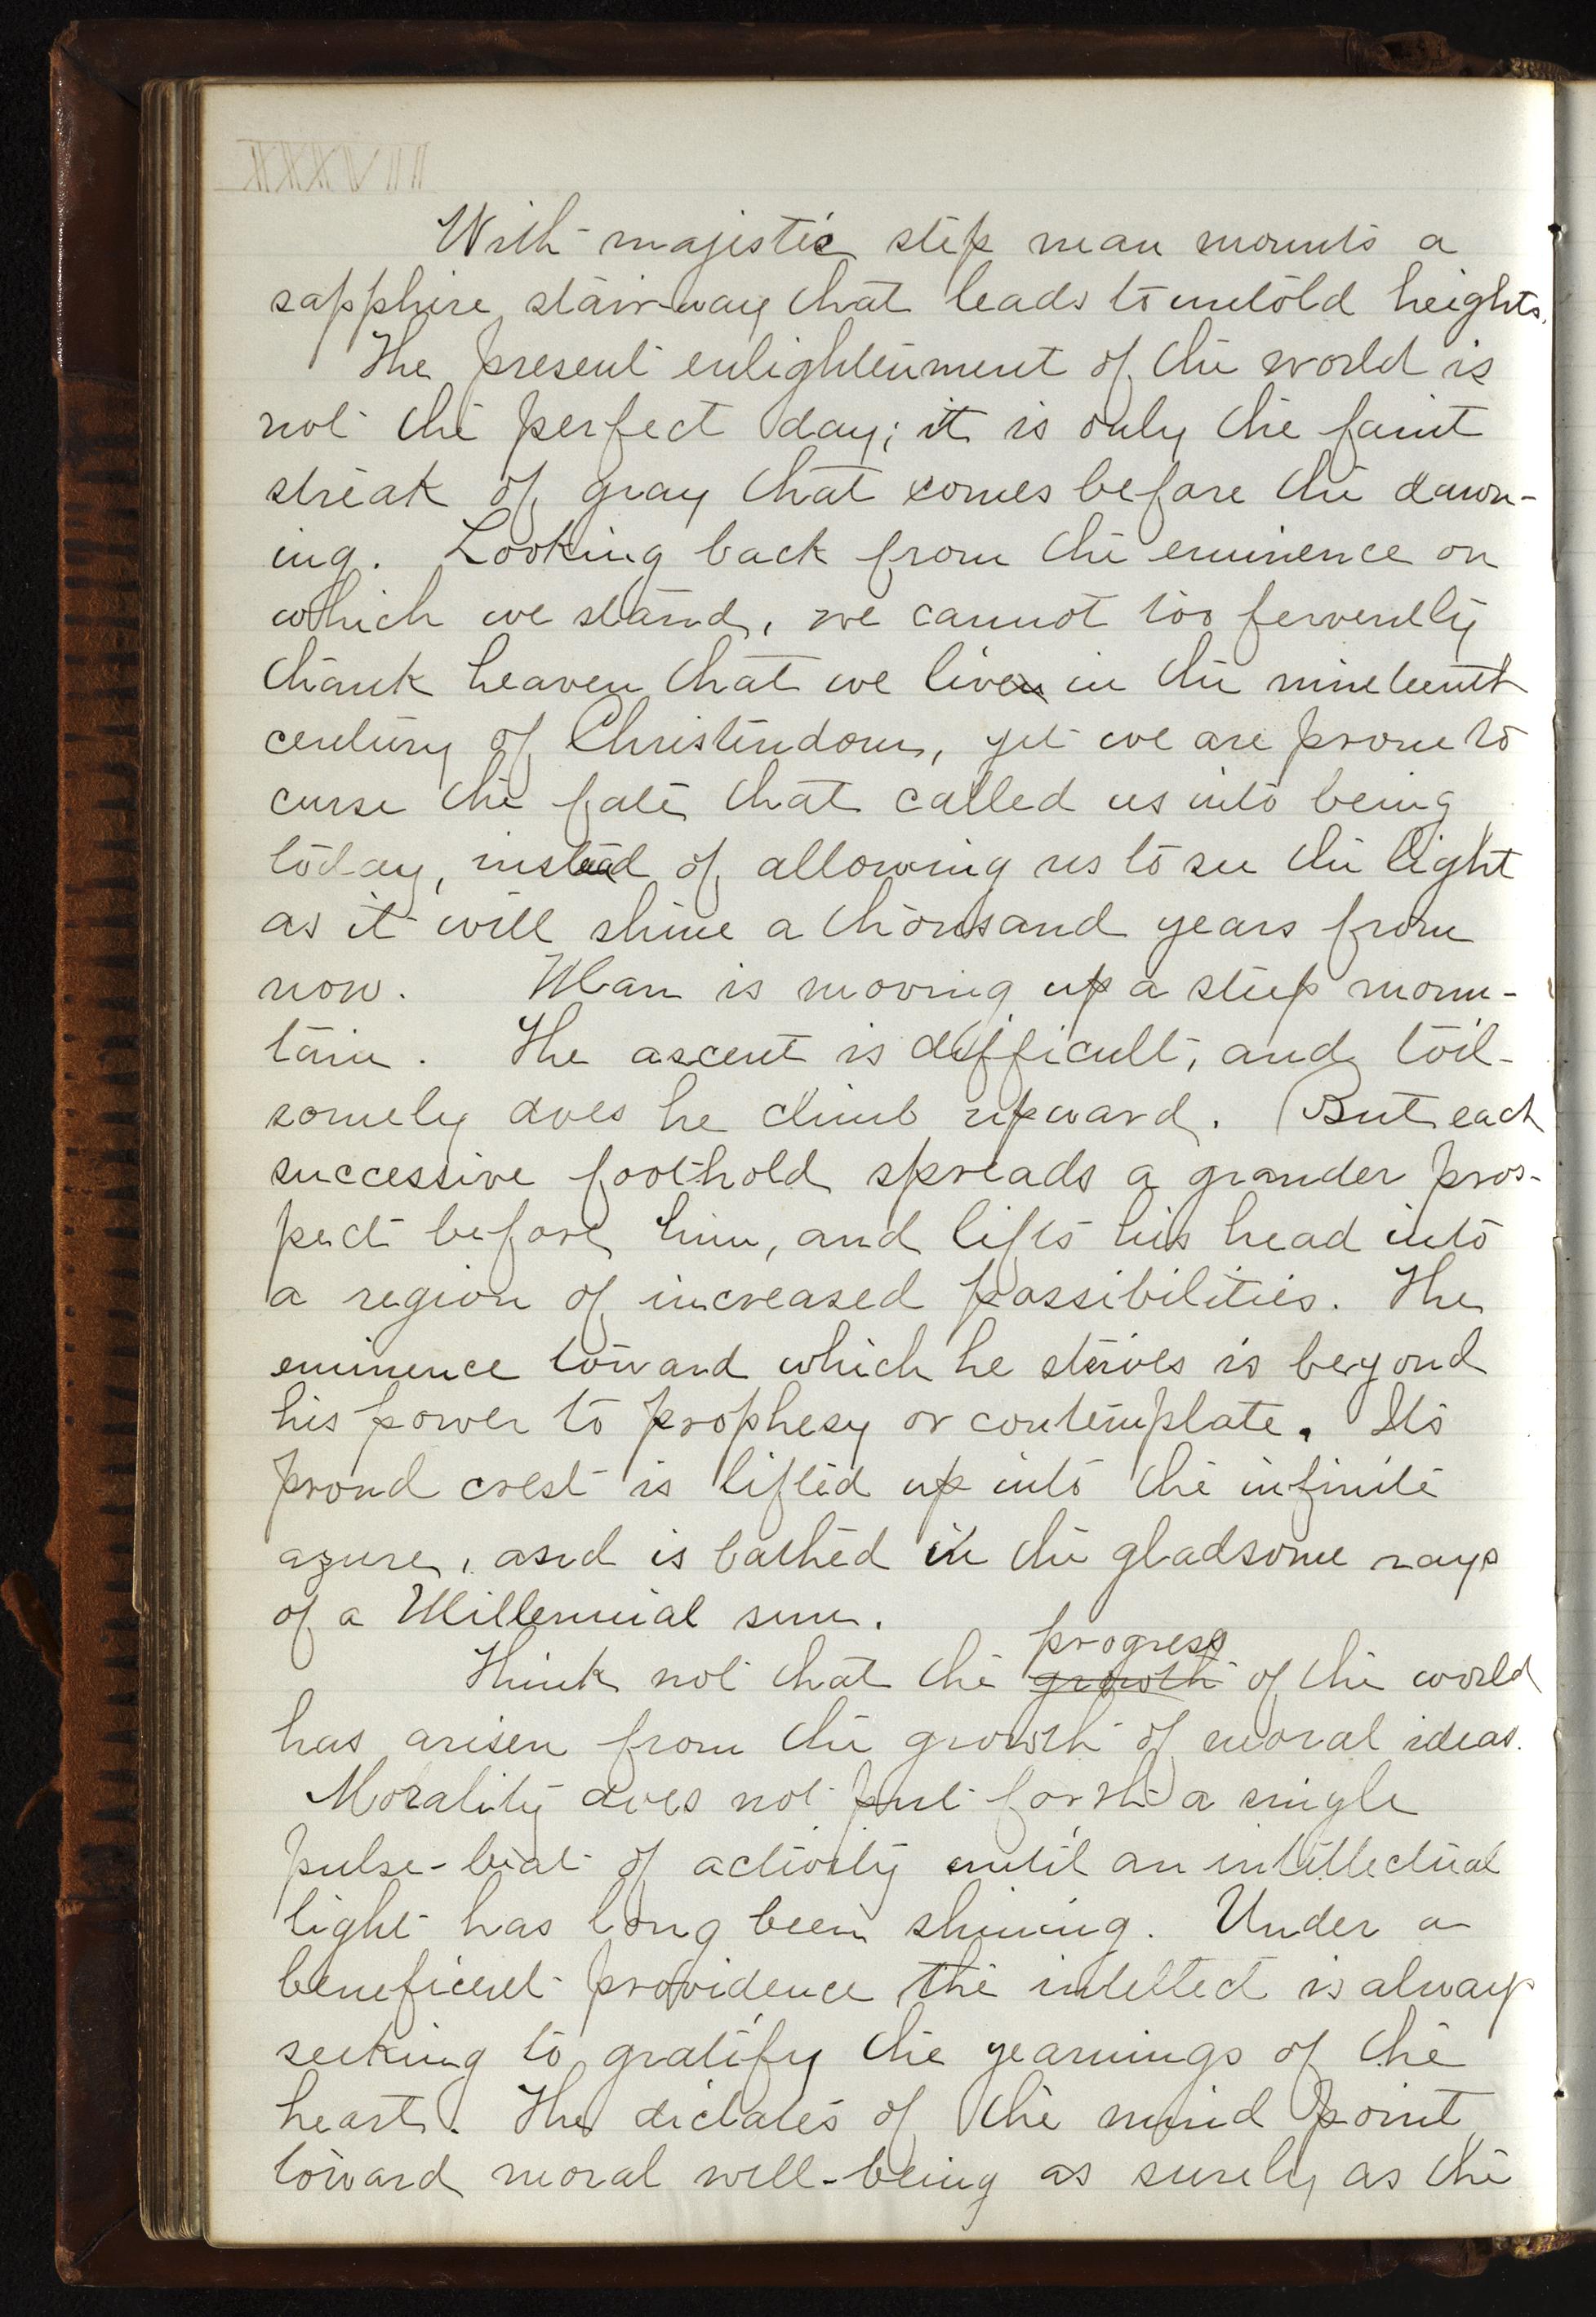 XXXVII
With majestic step man mounts a
sapphire stair-way that leads to untold heights.
The present enlightenment of the world is
not the perfect day; it is only the faint
streak of gray that comes before the dawn-
ing. Looking back from the eminence on
which we stand, we cannot too fervently
thank heaven that we live in the nineteenth
century of Christendom, yet we are prone to
curse the fate that called us into being
today, instead of allowing us to see the light
as it will shine a thousand years from
now. Man is moving up a steep moun-
tain. The ascent is difficult, and toil-
somely does he climb upward. But each
successive foothold spreads a grander pros-
pect before him, and lifts his head into
a region of increased possibilities. The
eminence toward which he strives is beyond
his power to prophesy or contemplate. Its
proud crest is lifted up into the infinite
azure, and is bathed in the gladsome rays
of a Millennial sun.
progress
Think not that the growth of the world
has arisen from the growth of moral ideas.
Morality does not put forth a single
pulse-beat of activity until an intellectual
light has long been shining. Under a
beneficent providence the intellect is always
seeking to gratify the yearnings of the
heart. The dictates of the mind point
toward moral well-being as surely as the